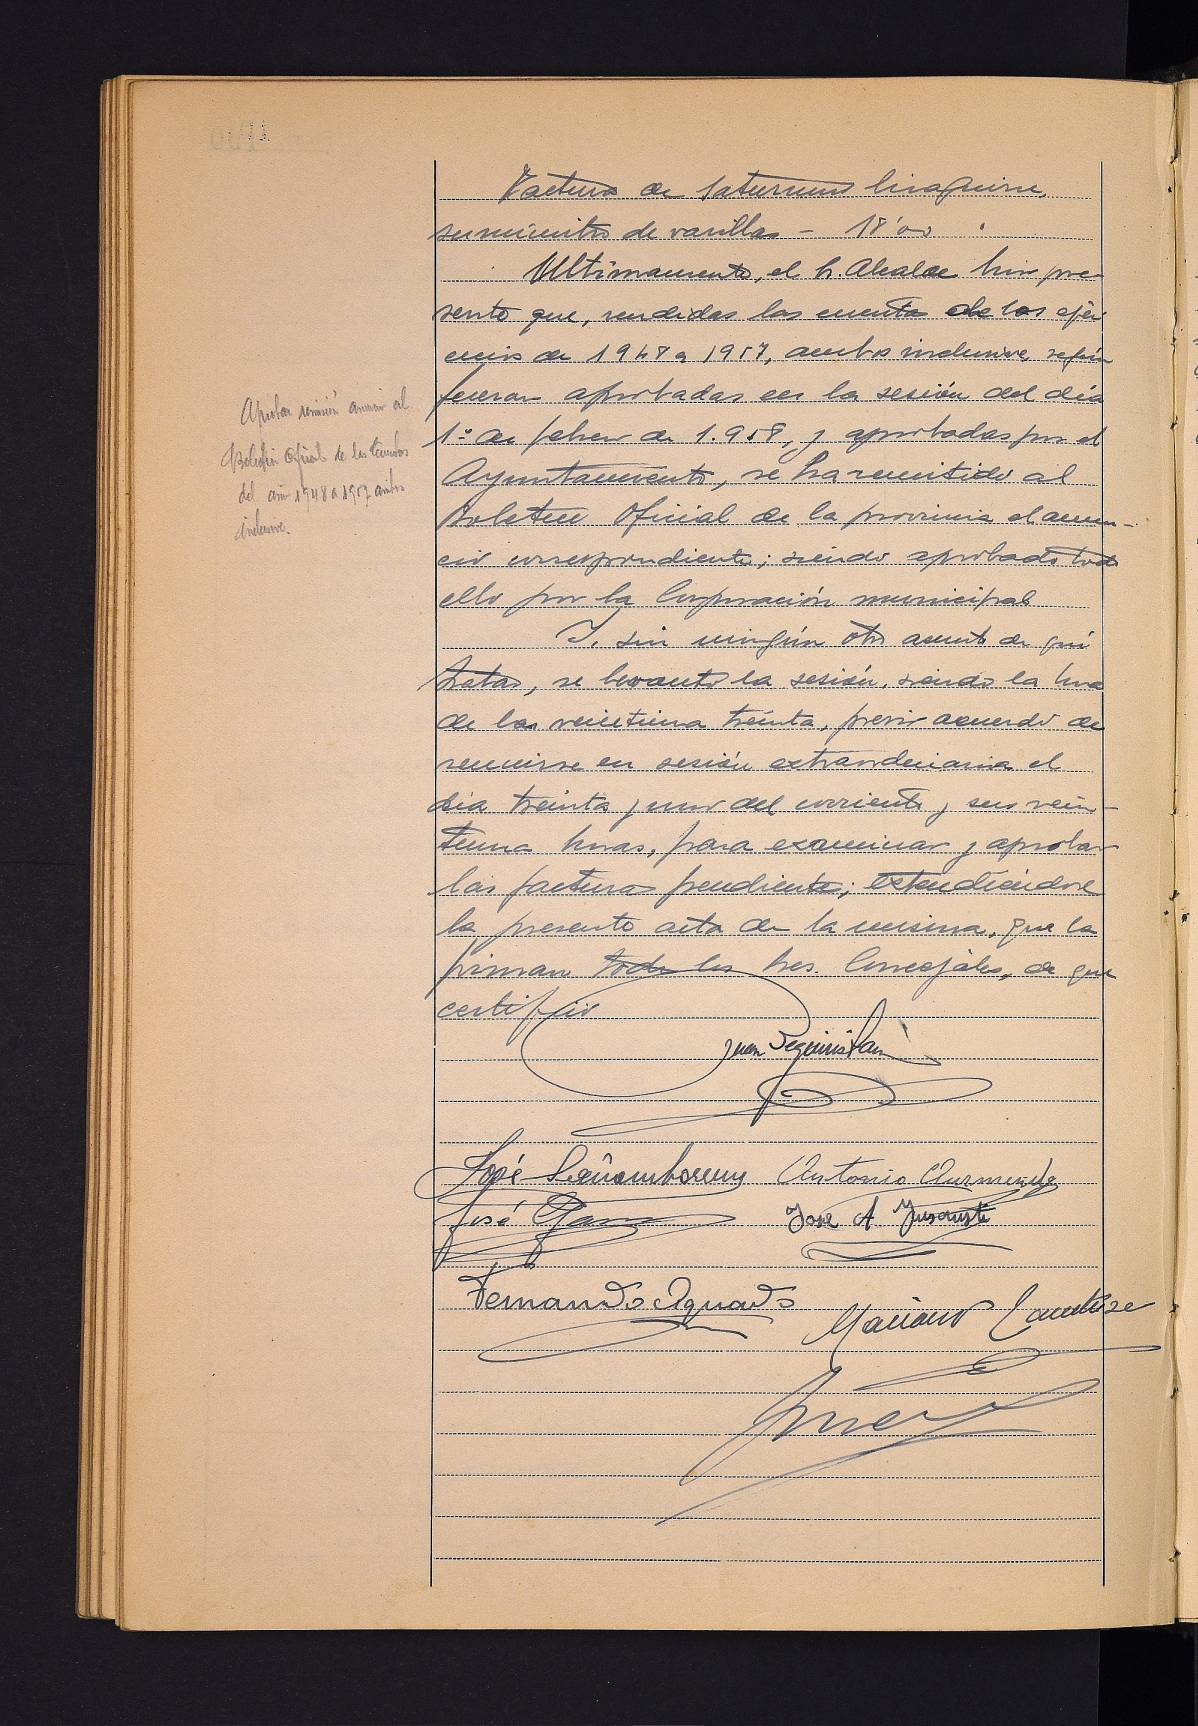 Factura de Saturnino Izaguirre,
suministro de varillas - 18'00
Ultimamente, el Sr. Alcalde hizo pre-
sente que, rendidas las cuentas de los ejer-
cicios de 1948 a 1957, ambos inclusive, según
fueron aprobadas en la sesión del día
1º de febrero de 1.958, y aprobadas por el
Ayuntamiento, se ha remitido al
Boletin Oficial de la provincia el anun-
cio correspondiente; siendo aprobado todo
ello por la Corporación municipal
Y, sin ningún otro asunto de que
tratar, se levantó la sesión, siendo la hora
de las veintiuna treinta, previo acuerdo de
reunirse en sesión extraordinaria el
dia treinta y uno del corriente y sus vein-
tiuna horas, para examinar y aprobar
las facturas pendientes; extendiéndose
la presente acta de la misma, que la
firman todos los Sres. Concejales, de que
certifico
Aprobar remisión anuncio al
Boletin Oficial de las Cuentas
del año 1948 a 1957 ambos
inclusive.
Juan Seguristain
José
Antonio
José
José A.
Fernando Aguado
Mariano